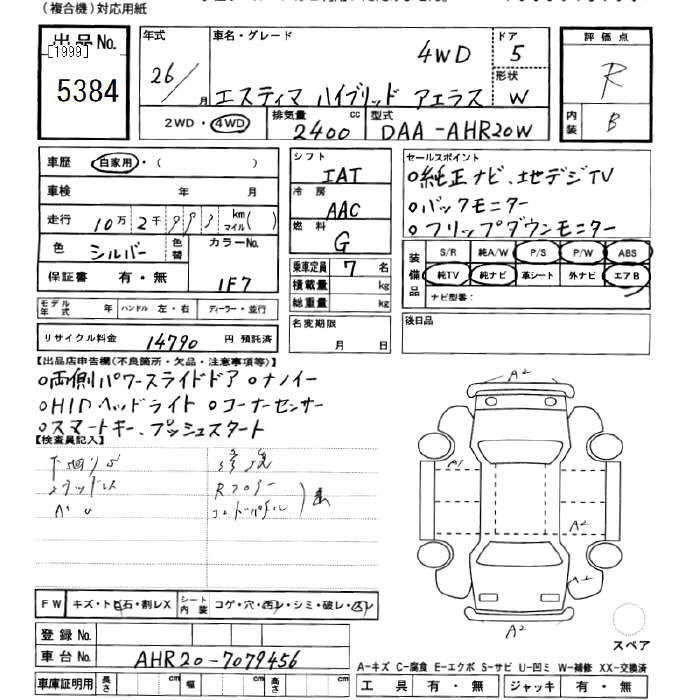 (複合機)対応用紙
出品No.
[1999]
5384
年式
26/
月
車名・グレード
4WD
エスティマ ハイブリッド アエラス
ドア
5
形状
W
評価点
R
内装
B
2WD・4WD
排気量
2400
cc
型式
DAA-AHR20W
車歴
自家用・( )
車検
年 月
走行
10万 2千
km
マイル( )
色
シルバー
色替
カラーNo.
1F7
保証書 有・無
モデル年式
年
ハンドル 左・右
ディーラー・並行
リサイクル料金
14790
円 預託済
シフト
IAT
冷房
AAC
燃料
G
乗車定員 7 名
積載量 kg
総重量 kg
名変期限
月 日
セールスポイント
○純正ナビ、地デジTV
○バックモニター
○フリップダウンモニター
装備品
S/R 純A/W P/S P/W ABS
純TV 純ナビ 革シート 外ナビ エアB
ナビ型番:
後日品
【出品店申告欄(不良箇所・欠品・注意事項等)】
○両側パワースライドドア ○ナノイー
○HIDヘッドライト ○コーナーセンサー
○スマートキー、プッシュスタート
【検査員記入】
下廻りサ
修復
Rフロアー
A2
A1
A2
A2
A2
FW
キズ・トビ石・割レX
シート内装
コゲ・穴・汚レ・シミ・破レ・スレ
登録No.
車台No.
AHR20-7079456
車庫証明用
長さ cm
幅 cm
高さ cm
スペア
A-キズ C-腐食 E-エクボ S-サビ U-凹ミ W-補修 XX-交換済
工具 有・無
ジャッキ 有・無